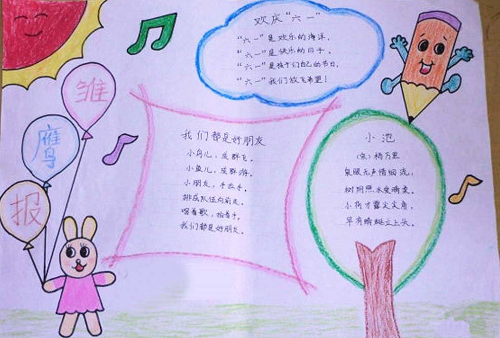 雏
鹰
报
欢庆“六一”
“六一”是欢乐的海洋,
“六一”是快乐的日子,
“六一”是孩子们自己的节日,
“六一”我们放飞希望!
我们都是好朋友
小鸟儿,成群飞。
小鱼儿,成群游。
小朋友,手拉手,
排成队伍向前走。
唱着歌,拍着手,
我们都是好朋友。
小池
(宋)杨万里
泉眼无声惜细流,
树阴照水爱晴柔。
小荷才露尖尖角,
早有蜻蜓立上头。